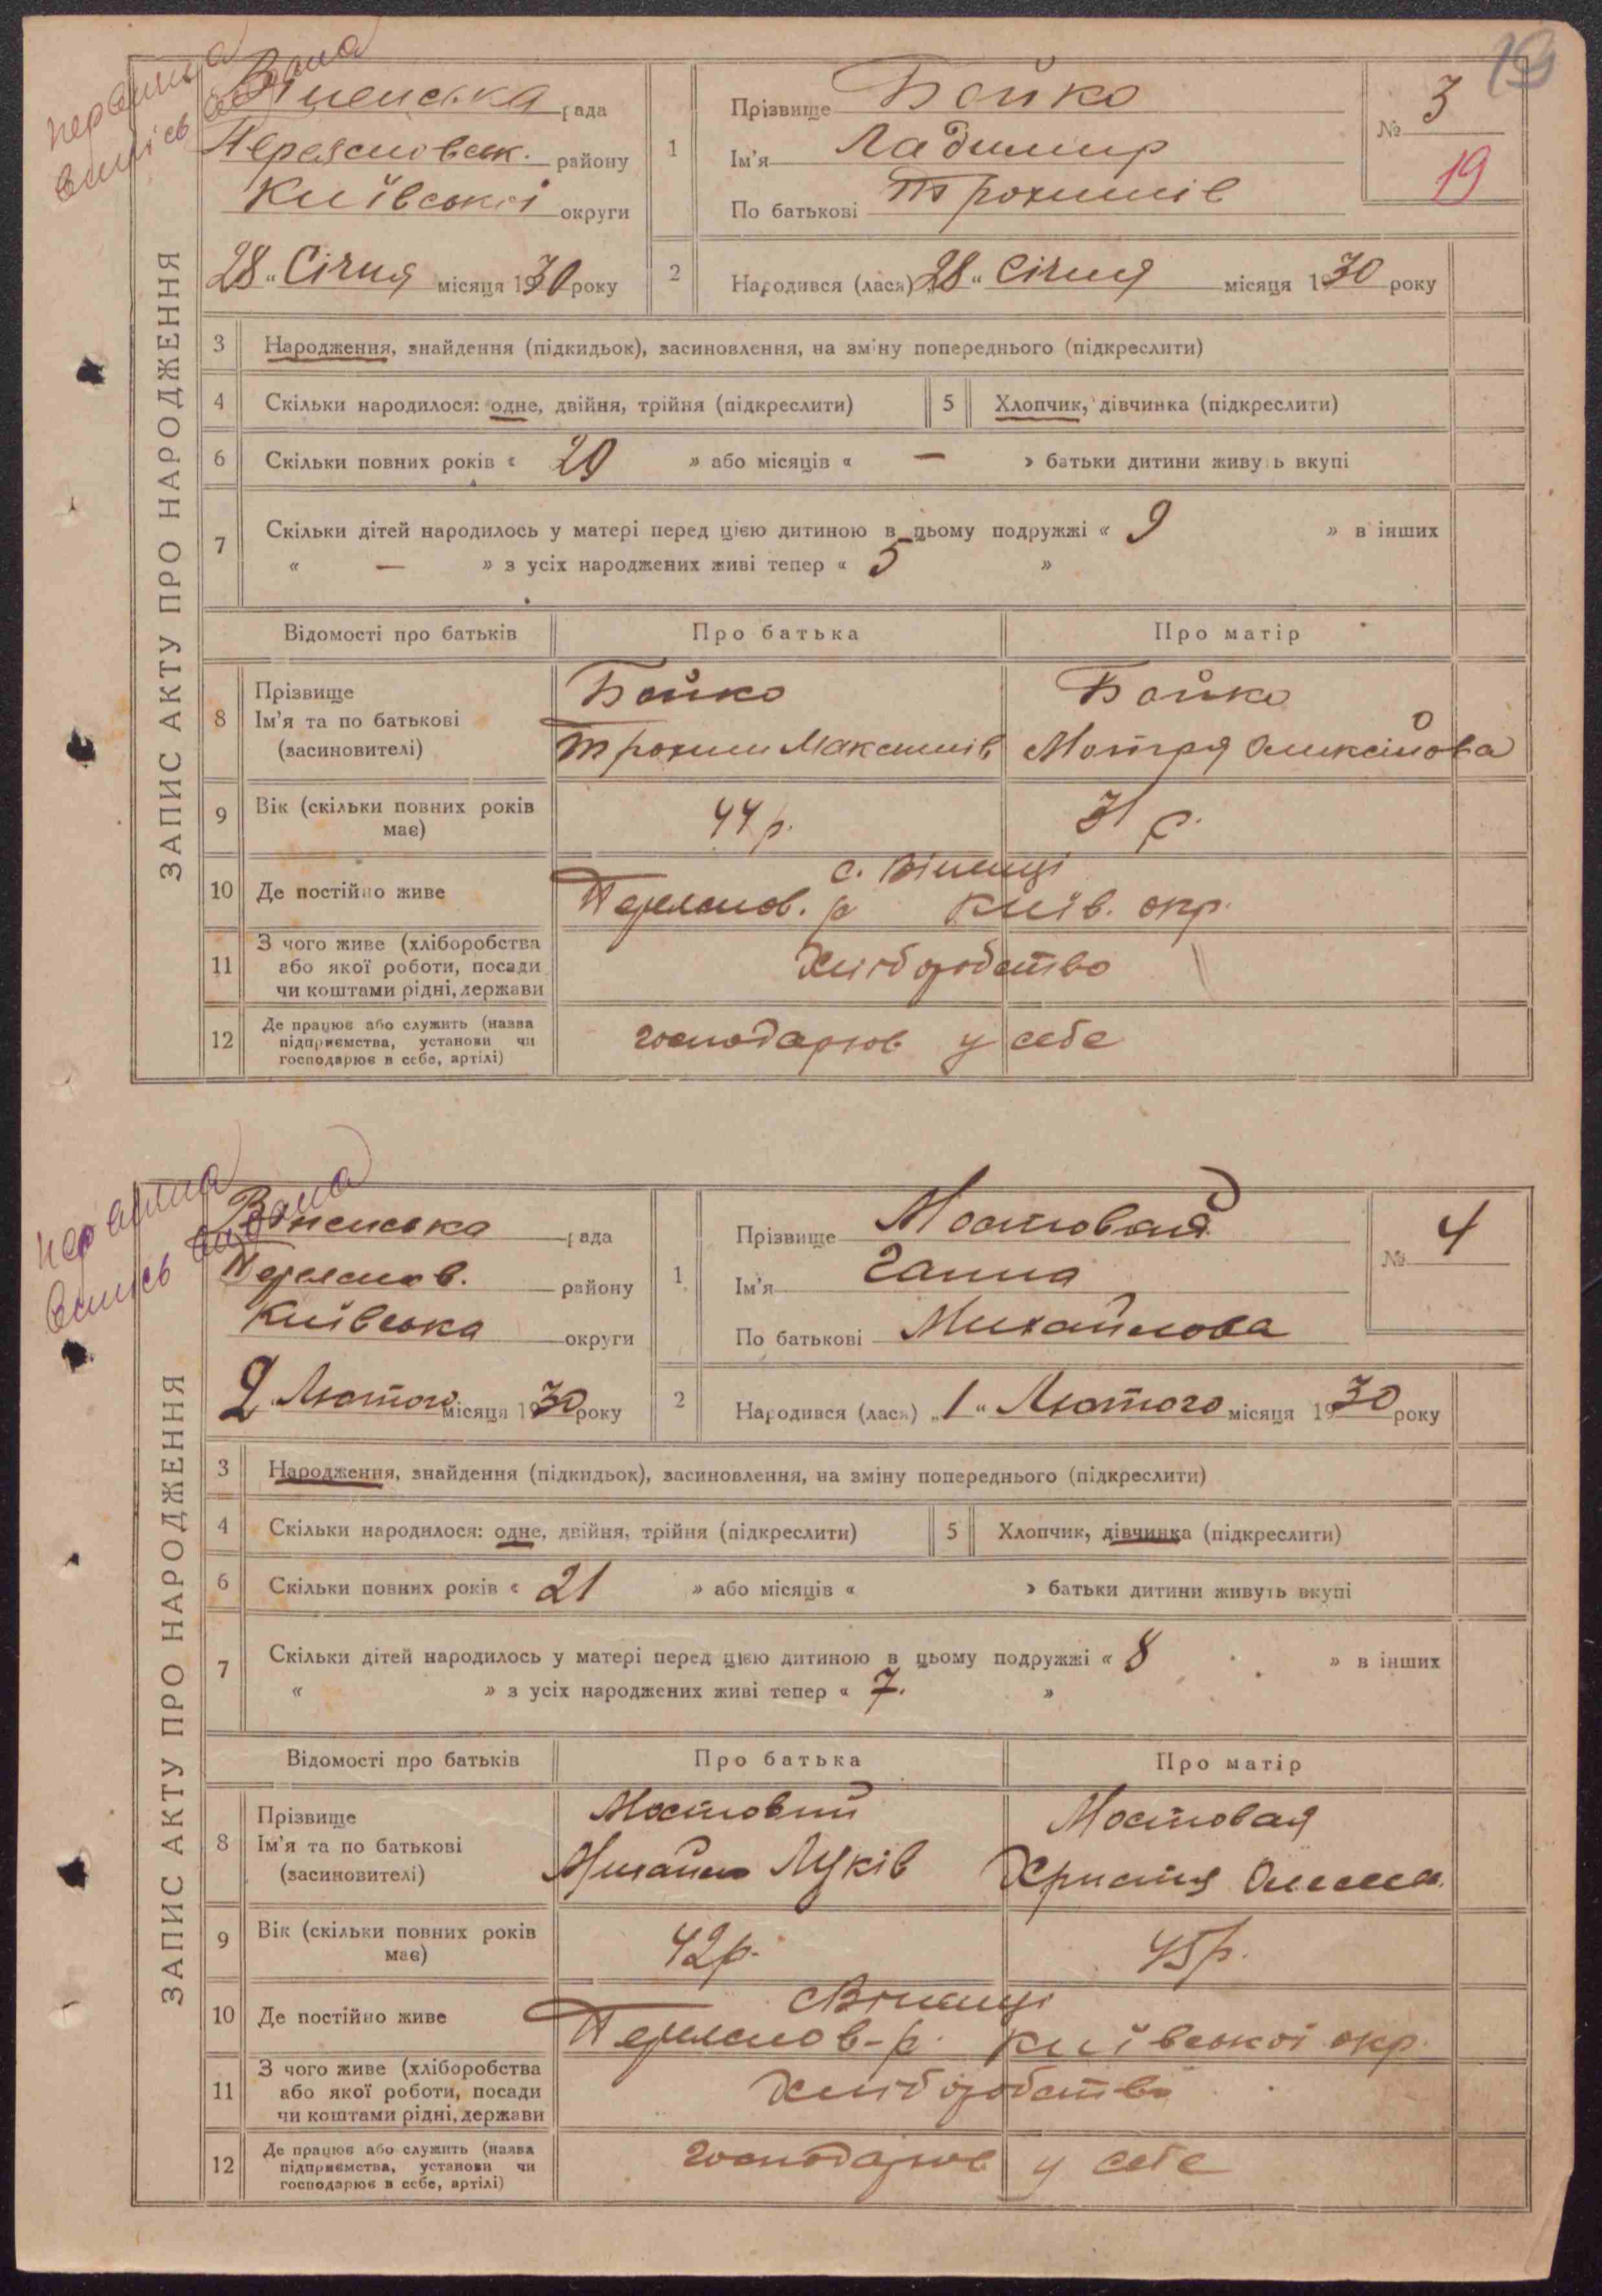 19
первинна
випись видана
ЗАПИС АКТУ ПРО НАРОДЖЕННЯ
Віненська рада
Переяславськ. району
Київської округи
28 „ Січня місяця 1930 року
1
Прізвище Бойко
Ім'я Ладимир
По батькові Трохимів
№ 3
19
2 Народився (лася) 28 „ Січня місяця 1930 року
3 Народження, знайдення (підкидьок), засиновлення, на зміну попереднього (підкреслити)
4 Скільки народилося: одне, двійня, трійня (підкреслити) 5 Хлопчик, дівчинка (підкреслити)
6 Скільки повних років « 20 » або місяців « — » батьки дитини живуть вкупі
7 Скільки дітей народилось у матері перед цією дитиною в цьому подружжі « 9 » в інших
« — » з усіх народжених живі тепер « 5 »
Відомості про батьків Про батька Про матір
8 Прізвище Бойко Бойко
Ім'я та по батькові
(засиновителі) Трохим Максимів Мотря Оликсійова
9 Вік (скільки повних років має) 44 р. 31 р.
10 Де постійно живе с. Віненці
Переяслов. р Київ. окр.
11 З чого живе (хліборобства
або якої роботи, посади
чи коштами рідні, держави Хліборобство
12 Де працює або служить (назва
підприємства, установи чи
господарює в себе, артілі) господарює у себе
первинна
випись видана
ЗАПИС АКТУ ПРО НАРОДЖЕННЯ
Віненська рада
Переяслов. району
Київська округи
2 Лютого місяця 1930 року
1
Прізвище Мостовая
Ім'я Ганна
По батькові Михайлова
№ 4
2 Народився (лася) „1 „ Лютого місяця 1930 року
3 Народження, знайдення (підкидьок), засиновлення, на зміну попереднього (підкреслити)
4 Скільки народилося: одне, двійня, трійня (підкреслити) 5 Хлопчик, дівчинка (підкреслити)
6 Скільки повних років « 21 » або місяців « » батьки дитини живуть вкупі
7 Скільки дітей народилось у матері перед цією дитиною в цьому подружжі « 8 » в інших
« » з усіх народжених живі тепер « 7. »
Відомості про батьків Про батька Про матір
8 Прізвище Мостовий Мостовая
Ім'я та по батькові
(засиновителі) Михайло Луків Христя
9 Вік (скільки повних років має) 42 р. 45 р.
10 Де постійно живе с Віненці
Переяслов-р. Київської окр.
11 З чого живе (хліборобства
або якої роботи, посади
чи коштами рідні, держави Хліборобство
12 Де працює або служить (назва
підприємства, установи чи
господарює в себе, артілі) господарює у себе